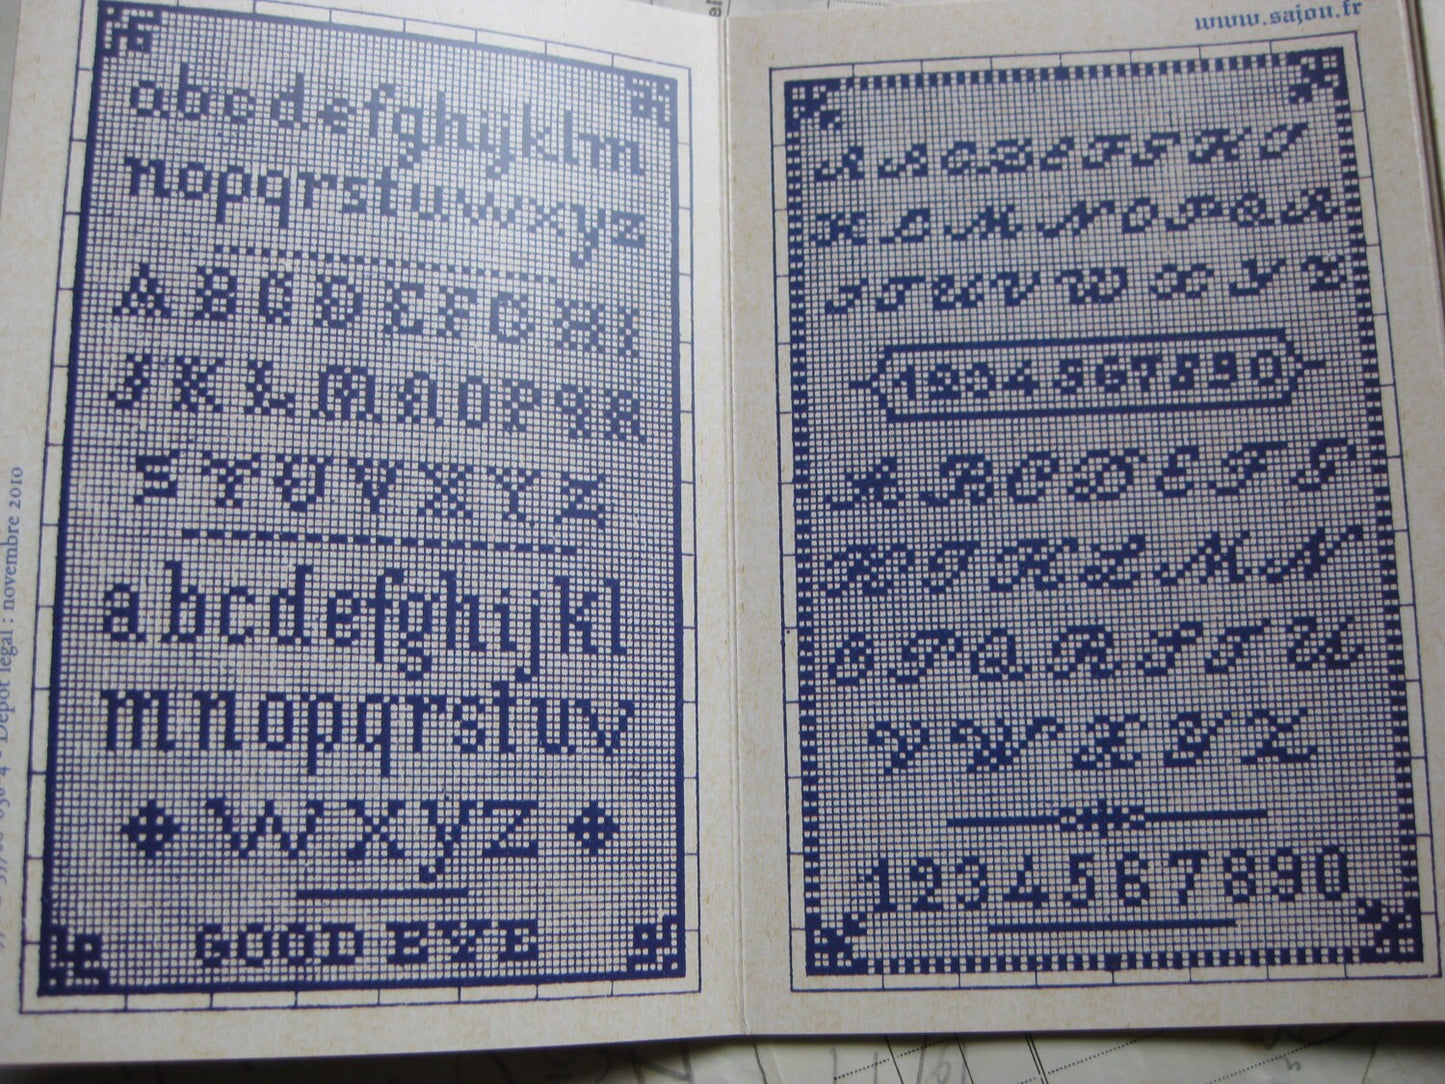 abcdefghijklm
nopqrstuvwxyz
ABCDEFGHI
JKLMNOPQR
STUVXYZ
abcdefghijkl
mnopqrstuv
wxyz
GOOD BYE
Dépôt légal : novembre 2010
www.sajou.fr
ABCDEFGHI
KLMNOPQR
STUVWXYZ
1234567890
ABCDEFG
HIKLMN
OPQRSTU
VWXYZ
1234567890